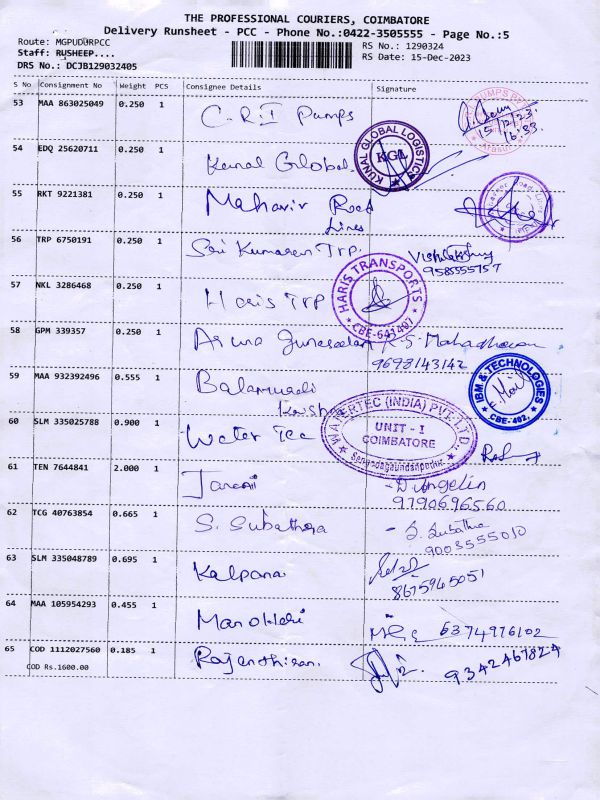 THE PROFESSIONAL COURIERS, COIMBATORE
Delivery Runsheet - PCC - Phone No.:0422-3505555 - Page No.:5
Route: MGPUDURPCC
Staff: RUSHEEP....
DRS No.: DCJB129032405
RS No.: 1290324
RS Date: 15-Dec-2023
S No Consignment No Weight PCS Consignee Details Signature
53 MAA 863025049 0.250 1 C.R.I Pumps 15/12/23
16.33
54 EDQ 25620711 0.250 1 Kunal Global
KUNAL GLOBAL LOGISTICS
KGL
55 RKT 9221381 0.250 1 Mahavir Road
Lines
56 TRP 6750191 0.250 1 Sri Kumaran Trp.
57 NKL 3286468 0.250 1 Haris Trp
HARIS TRANSPORTS
CBE-641407
58 GPM 339357 0.250 1 Aruna Gunaseelan
9698143142
59 MAA 932392496 0.555 1
IBM & TECHNOLOGIES
CBE-402.
60 SLM 335025788 0.900 1 Water Tec
WATERTEC (INDIA) PVT. LTD.
UNIT - I
COIMBATORE
61 TEN 7644841 2.000 1 - D. Angelin
9790696560
62 TCG 40763854 0.665 1 S. Subathra - S. Subathra
9003555010
63 SLM 335048789 0.695 1 Kalpana
8675945051
64 MAA 105954293 0.455 1 6374976102
65 COD 1112027560 0.185 1 9342467824
COD Rs.1600.00